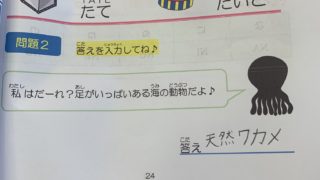 TATE
たて
たいこ
問題2
答えを入力してね♪
私はだーれ？足がいっぱいある海の動物だよ♪
答え 天然ワカメ
24